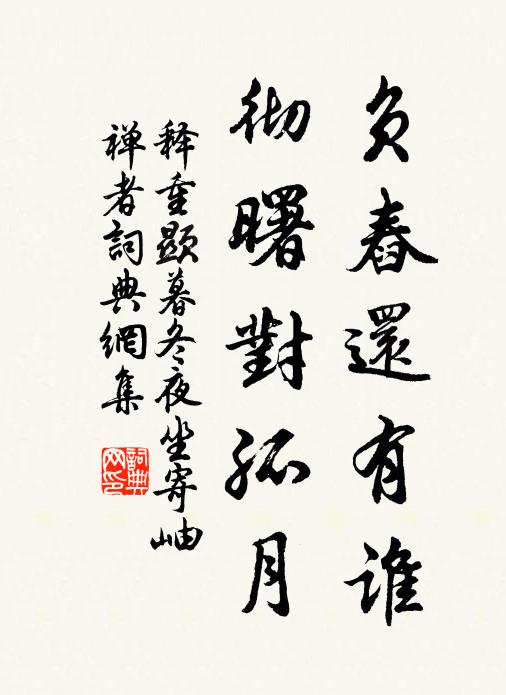 负舂還有誰
彻曙對孤月
释重顯暮冬夜坐寄岫
禅者詞典網集
詞典网印